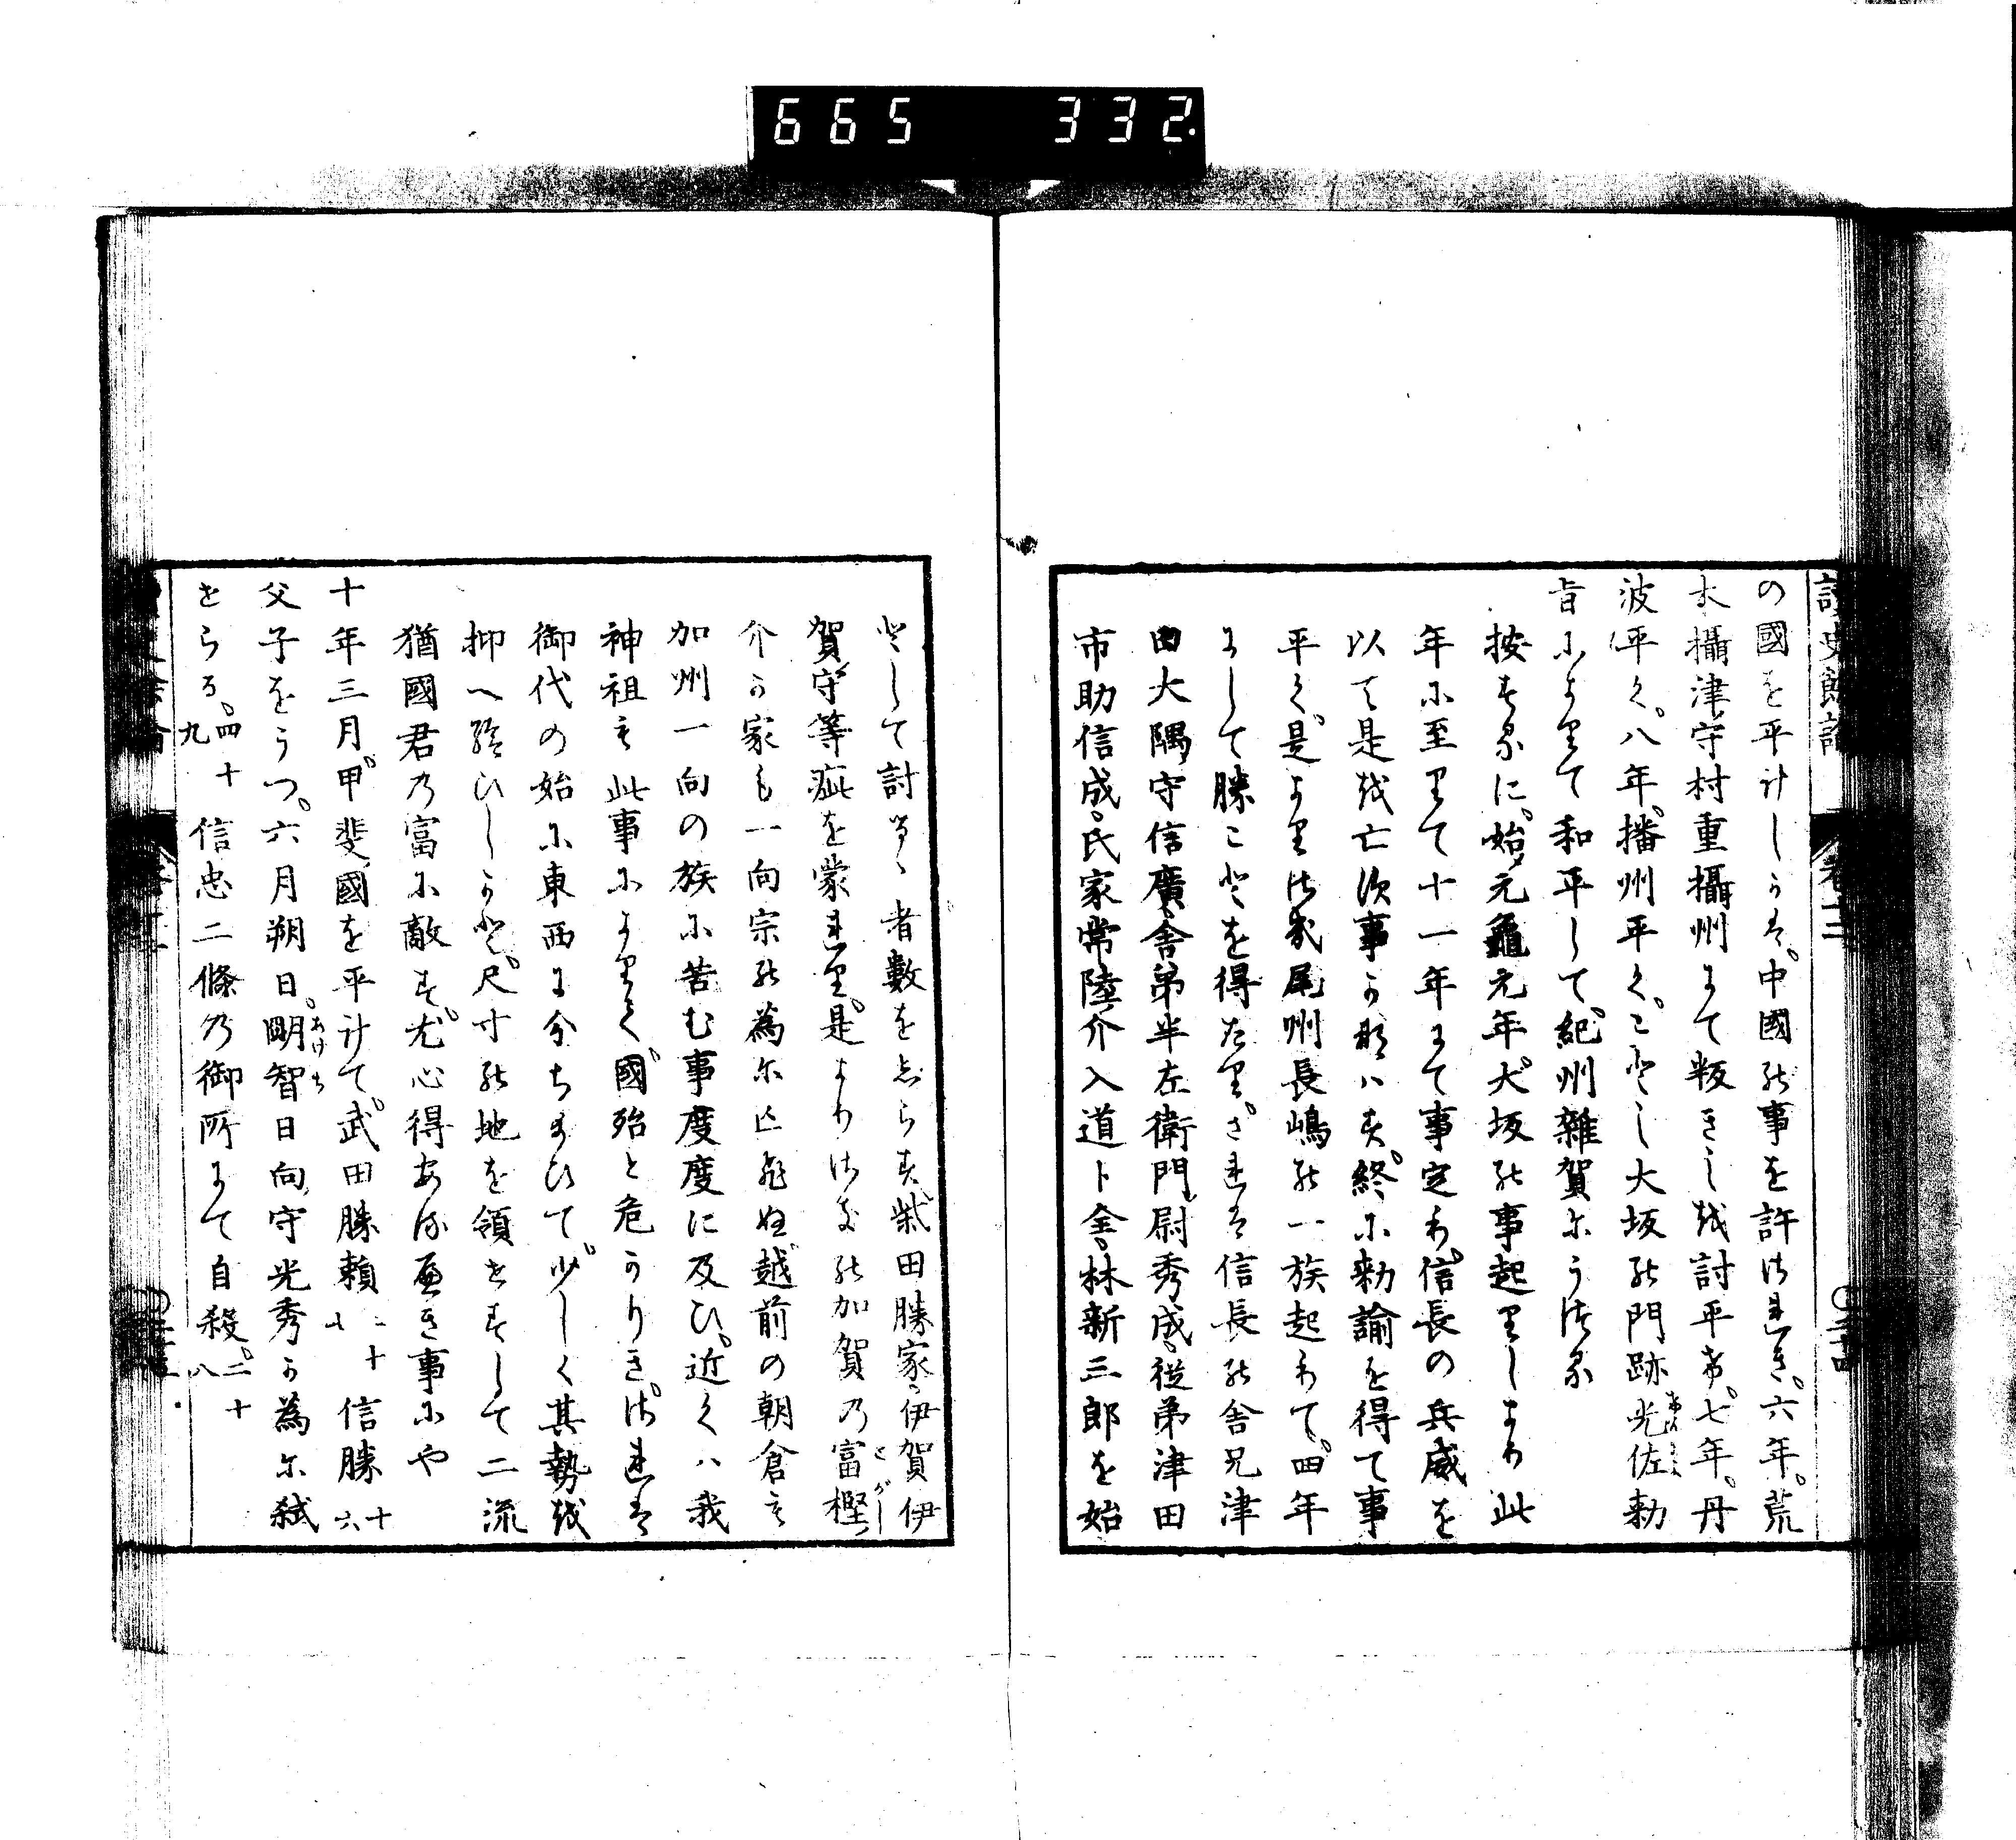 665 332
讀史餘論 卷十二
の國を平けしかは。中國の事を許されき。六年。荒
木攝津守村重攝州にて叛きしを討平く。七年。丹
波平く。八年。播州平く。ことし大坂の門跡光佐勅
旨によりて和平して。紀州雜賀にうつる
按するに。始元龜元年大坂の事起りしより此
年に至りて十一年にて事定れり。信長の兵威を
以て是を亡す事かなはす。終に勅諭を得て事
平く。是よりさき尾州長嶋の一族起りて。四年
にして勝ことを得たり。されは信長の舎兄津
田大隅守信廣。舎弟半左衛門尉秀成。從弟津田
市助信成。氏家常陸介入道卜全。林新三郎を始
として討るゝ者數をしらす。柴田勝家。伊賀伊
賀守等疵を蒙れり。是よりさきの加賀の富樫
とがし
介か家も一向宗の為に亡ひぬ。越前の朝倉も
加州一向の族に苦む事度度に及ひ。近くハ我
神祖も此事によりて。國殆と危かりき。されは
御代の始に東西に分ちまひて。少しく其勢を
抑へ給ひしかと。尺寸の地を領せすして二流
猶國君の富に敵す。尤心得あるへき事にや
十年三月。甲斐國を平けて。武田勝賴 信勝 十六
父子をうつ。六月朔日。明智日向守光秀か為に弑
あけち
せらる。四十九 信忠二條の御所にて自殺。二十八